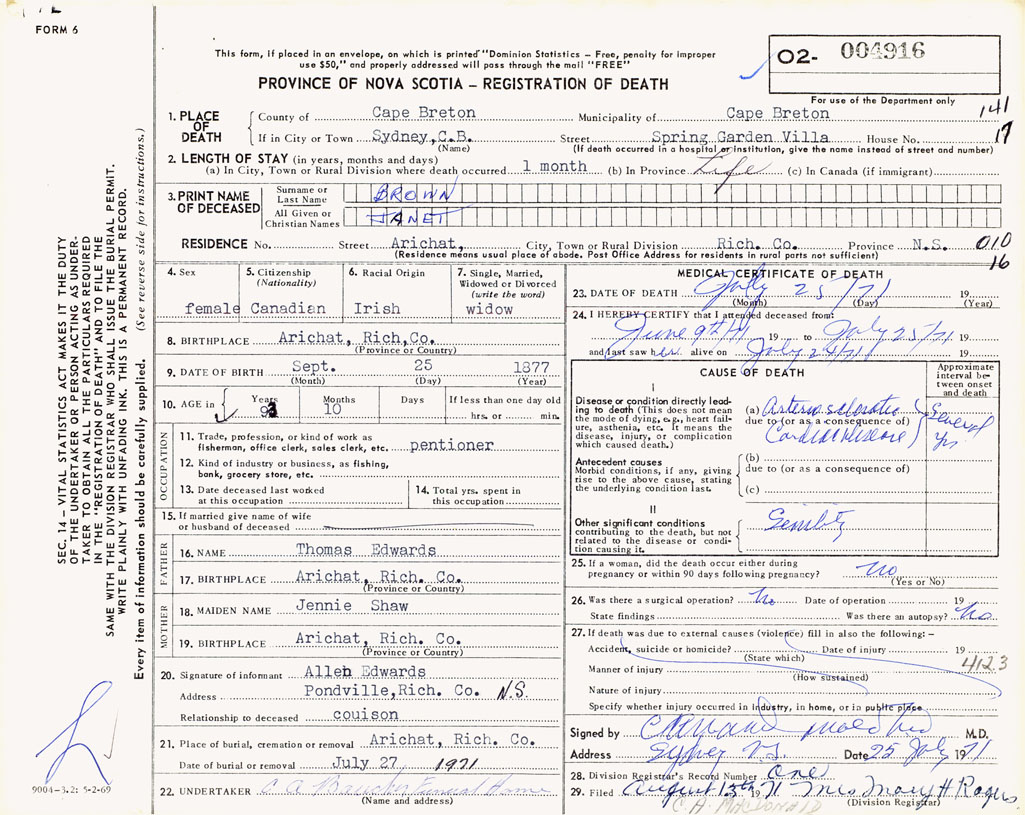 FORM 6
This form, if placed in an envelope, on which is printed "Dominion Statistics – Free, penalty for improper
use $50," and properly addressed will pass through the mail "FREE"
O2- 004916
For use of the Department only
PROVINCE OF NOVA SCOTIA – REGISTRATION OF DEATH
141
1. PLACE OF DEATH County of Cape Breton Municipality of Cape Breton
If in City or Town Sydney,C.B. Street Spring Garden Villa House No. 17
(Name) (If death occurred in a hospital or institution, give the name instead of street and number)
2. LENGTH OF STAY (in years, months and days)
(a) In City, Town or Rural Division where death occurred 1 month (b) In Province Life (c) In Canada (if immigrant)
3. PRINT NAME OF DECEASED Surname or Last Name BROWN
All Given or Christian Names JANET
RESIDENCE No. Street Arichat, City, Town or Rural Division Rich. Co. Province N.S. 010
(Residence means usual place of abode. Post Office Address for residents in rural parts not sufficient) 16
4. Sex 5. Citizenship (Nationality) 6. Racial Origin 7. Single, Married, Widowed or Divorced (write the word)
female Canadian Irish widow
8. BIRTHPLACE Arichat, Rich,Co.
(Province or Country)
9. DATE OF BIRTH Sept. 25 1877
(Month) (Day) (Year)
10. AGE in Years Months Days If less than one day old
93 10 hrs. or min.
OCCUPATION
11. Trade, profession, or kind of work as
fisherman, office clerk, sales clerk, etc. pentioner
12. Kind of industry or business, as fishing,
bank, grocery store, etc.
13. Date deceased last worked
at this occupation
14. Total yrs. spent in
this occupation
15. If married give name of wife
or husband of deceased
FATHER
16. NAME Thomas Edwards
17. BIRTHPLACE Arichat, Rich. Co.
(Province or Country)
MOTHER
18. MAIDEN NAME Jennie Shaw
19. BIRTHPLACE Arichat, Rich. Co.
(Province or Country)
20. Signature of informant Allen Edwards
Address Pondville,Rich. Co. N.S.
Relationship to deceased couison
21. Place of burial, cremation or removal Arichat, Rich. Co.
Date of burial or removal July 27 1971
22. UNDERTAKER C A Funeral Home
(Name and address)
MEDICAL CERTIFICATE OF DEATH
23. DATE OF DEATH July 25/71 19
(Month) (Day) (Year)
24. I HEREBY CERTIFY that I attended deceased from:
June 9th/71 19 to July 25/71
and last saw her alive on July 24/71 19
CAUSE OF DEATH
Approximate
interval be-
tween onset
and death
I
Disease or condition directly lead-
ing to death (This does not mean
the mode of dying, e.g., heart fail-
ure, asthenia, etc. It means the
disease, injury, or complication
which caused death.)
(a) Arteriosclerotic
due to (or as a consequence of)
(Cardiac disease)
Several
yrs
Antecedent causes
Morbid conditions, if any, giving
rise to the above cause, stating
the underlying condition last.
(b)
due to (or as a consequence of)
(c)
II
Other significant conditions
contributing to the death, but not
related to the disease or condi-
tion causing it.
Senility
25. If a woman, did the death occur either during
pregnancy or within 90 days following pregnancy? no
(Yes or No)
26. Was there a surgical operation? no Date of operation 19
State findings Was there an autopsy? no
27. If death was due to external causes (violence) fill in also the following:–
Accident, suicide or homicide? Date of injury 19
(State which) 4123
Manner of injury
(How sustained)
Nature of injury
Specify whether injury occurred in Industry, in home, or in public place
Signed by M.D.
Address Sydney N.S. Date 25 July 1971
28. Division Registrar's Record Number One
29. Filed August 13th 1971 Mrs Mary H Rogers
C. A. MACDONALD (Division Registrar)
SEC. 14 – VITAL STATISTICS ACT MAKES IT THE DUTY
OF THE UNDERTAKER OR PERSON ACTING AS UNDER-
TAKER TO OBTAIN ALL THE PARTICULARS REQUIRED
IN THE "REGISTRATION OF DEATH" AND TO FILE THE
SAME WITH THE DIVISION REGISTRAR WHO SHALL ISSUE THE BURIAL PERMIT.
WRITE PLAINLY WITH UNFADING INK. THIS IS A PERMANENT RECORD.
Every item of information should be carefully supplied. (See reverse side for instructions.)
9004-3.2: 5-2-69